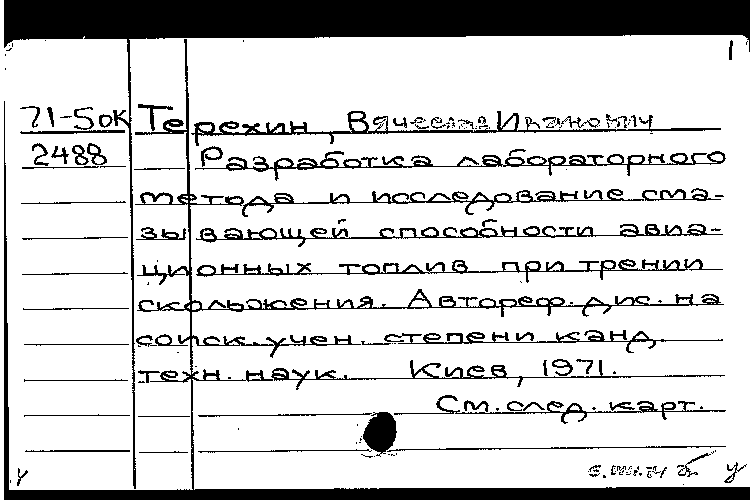 1
71-5ок Терехин, Вячеслав Иванович
2488 Разработка лабораторного
метода и исследование сма-
зывающей способности авиа-
ционных топлив при трении
скольжения. Автореф. дис. на
соиск. учен. степени канд.
техн. наук. Киев, 1971.
См. след. карт.
у